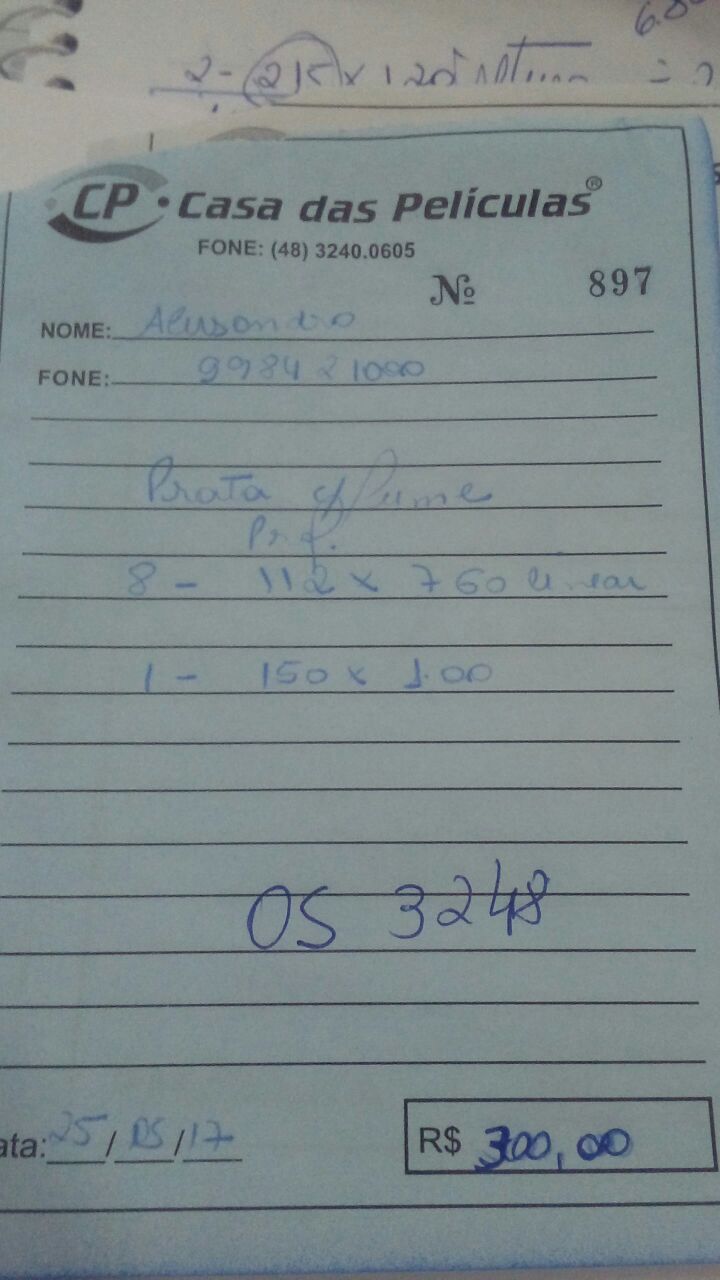 2 -
CP • Casa das Películas®
FONE: (48) 3240.0605
Nº 897
NOME: Alessandro
FONE: 998421000
Prata c/
8 - 112 x 760 linear
1 - 150 x 1.00
OS 3248
ata: 25/05/17
R$ 300,00